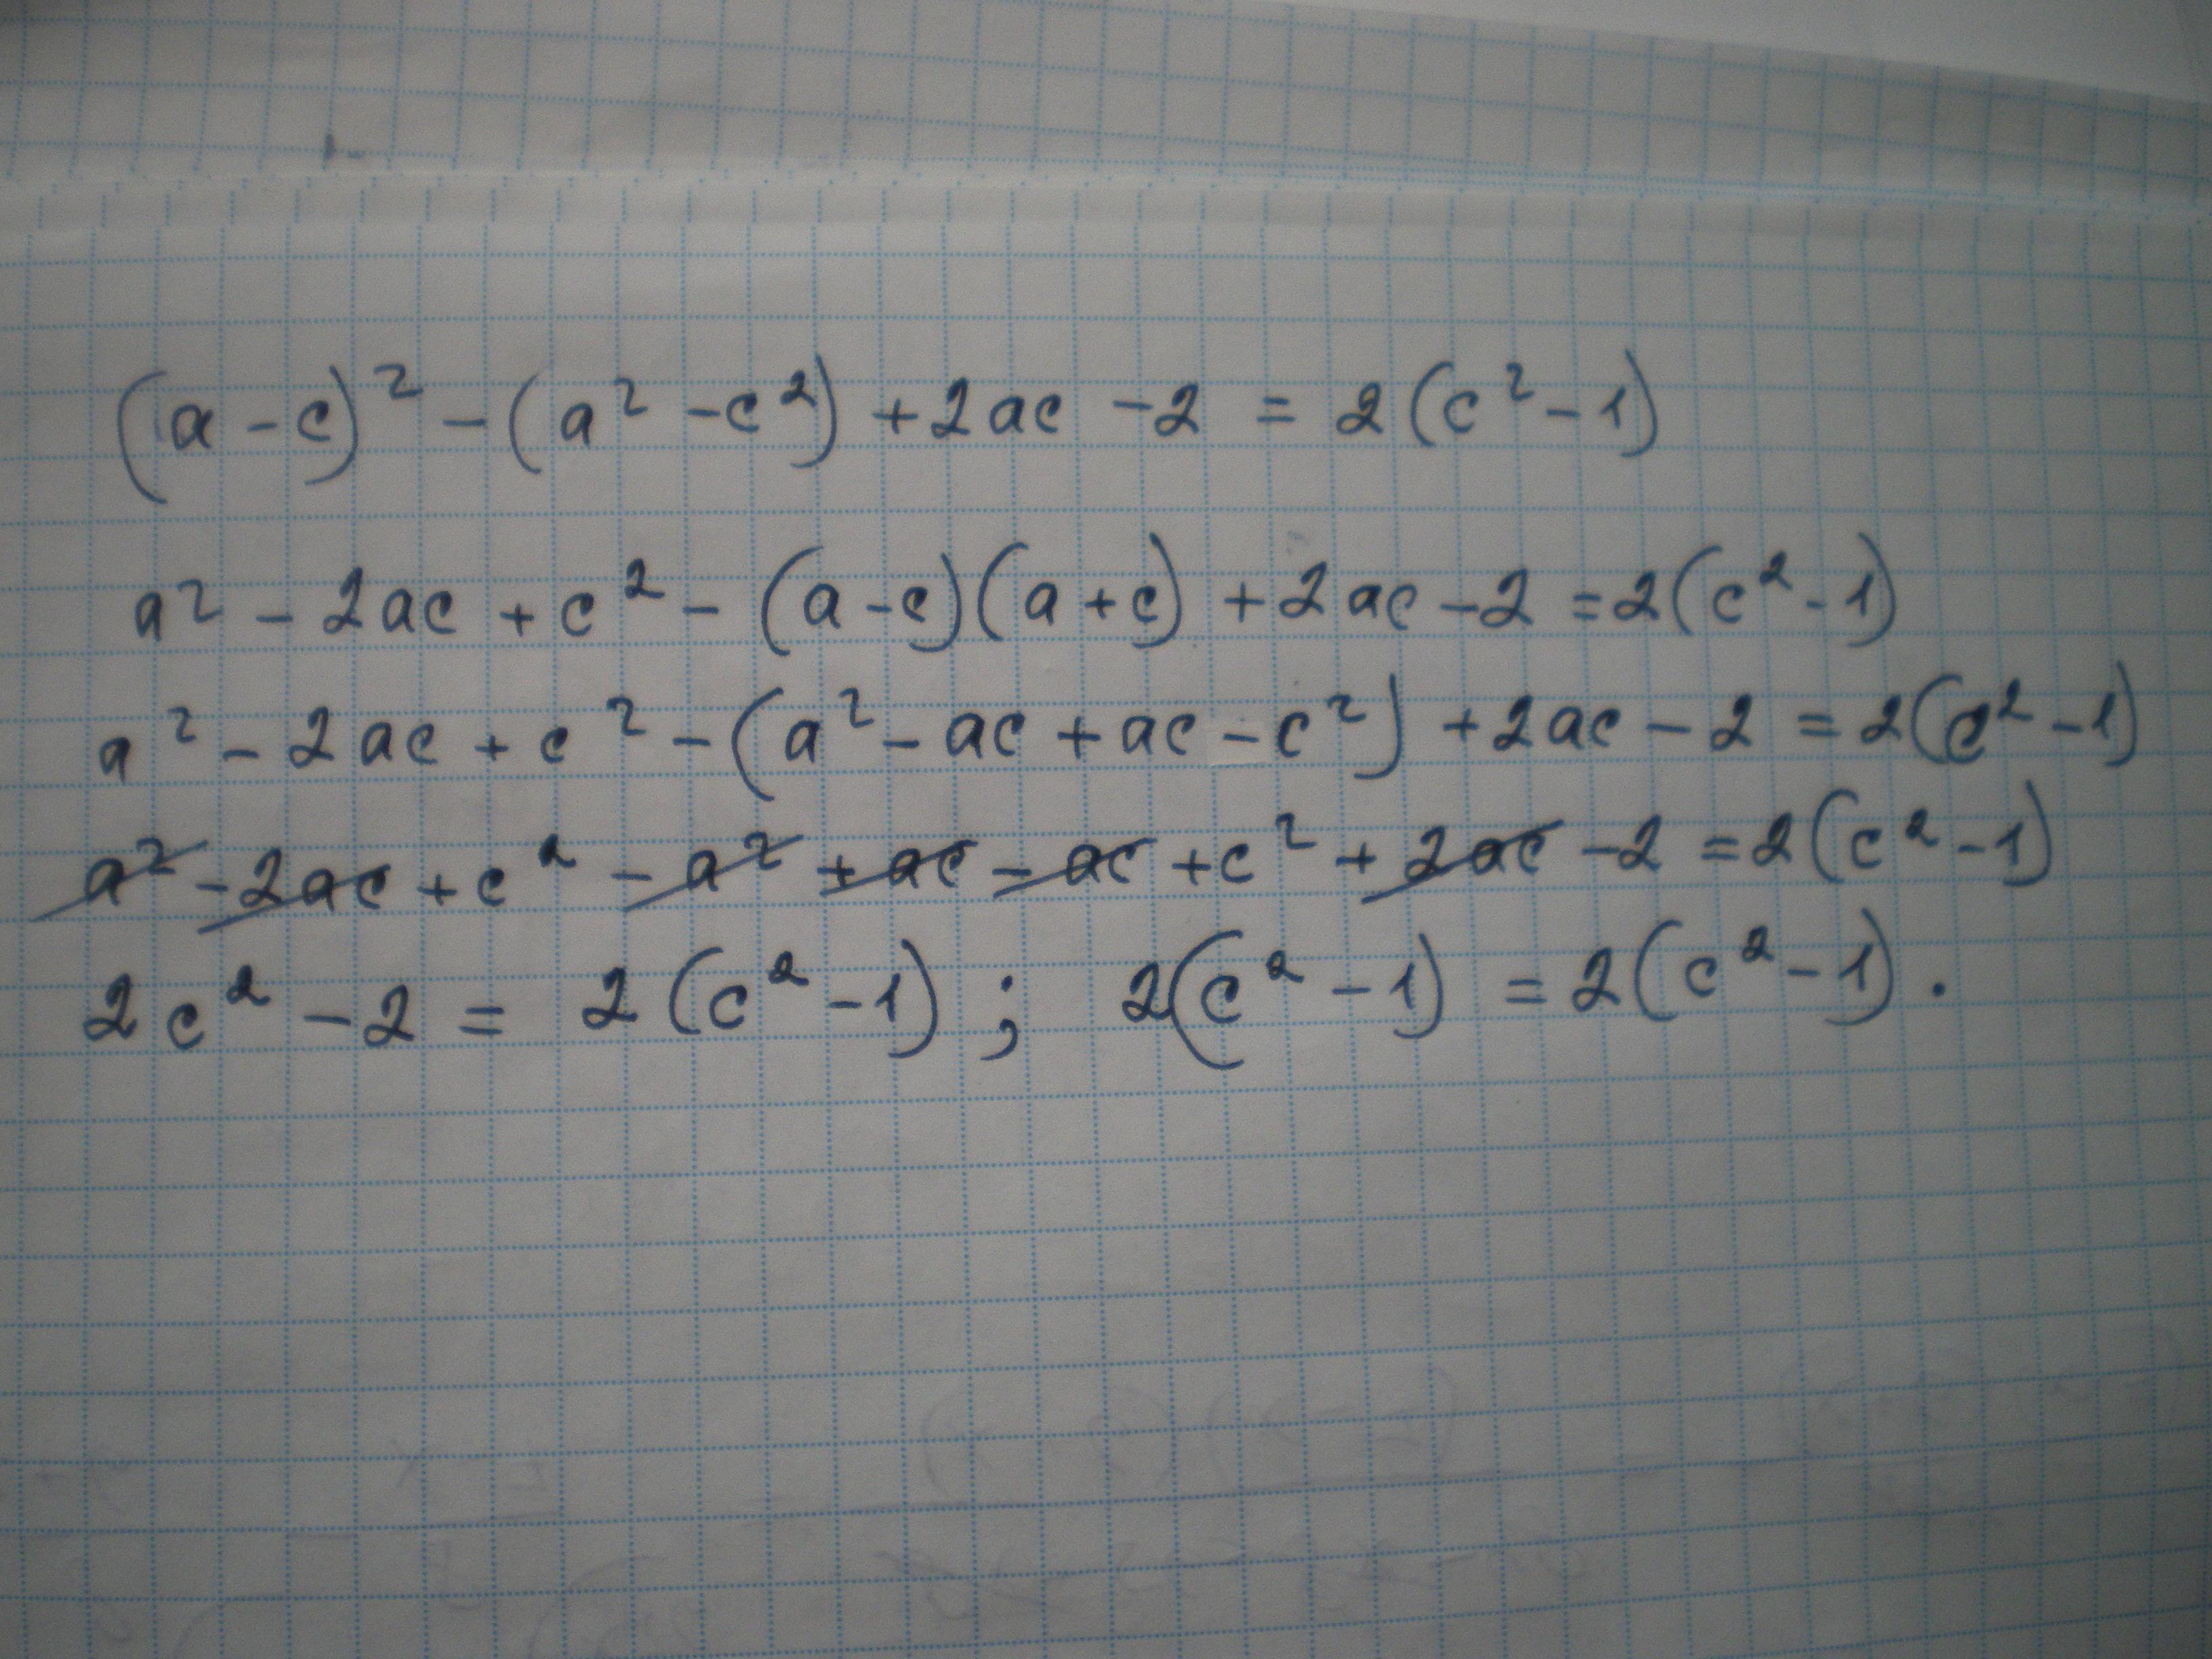 (a - c)² - (a² - c²) + 2ac - 2 = 2(c² - 1)
a² - 2ac + c² - (a - c)(a + c) + 2ac - 2 = 2(c² - 1)
a² - 2ac + c² - (a² - ac + ac - c²) + 2ac - 2 = 2(c² - 1)
a² - 2ac + c² - a² + ac - ac + c² + 2ac - 2 = 2(c² - 1)
2c² - 2 = 2(c² - 1) ; 2(c² - 1) = 2(c² - 1).